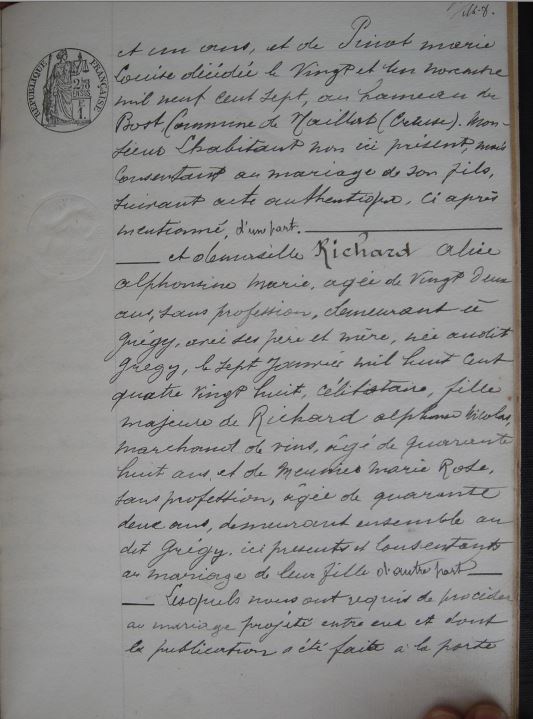 RÉPUBLIQUE FRANÇAISE
et un ans, et de Pinot marie
Louise décédée le Vingt et un novembre
mil neuf cent sept, au hameau du
Bost, Commune de Naillat (Creuse). Mon-
sieur Lhabitant non ici présent, mais
Consentant au mariage de son fils,
suivant acte authentique, ci après
mentionné, d'une part.
et demoiselle Richard alice
alphonsine Marie, agée de vingt deux
ans, sans profession, demeurant à
Grégy, avec ses père et mère, née audit
Grégy, le sept Janvier mil huit cent
quatre vingt huit, célibataire, fille
majeure de Richard alphonse Nicolas,
marchand de vins, âgé de quarante
huit ans, et de Meunier Marie Rose,
sans profession, âgée de quarante
deux ans, demeurant ensemble au
dit Grégy, ici présents et Consentants
au mariage de leur fille d'autre part
Lesquels nous ont requis de procéder
au mariage projeté entre eux et dont
la publication a été faite à la porte